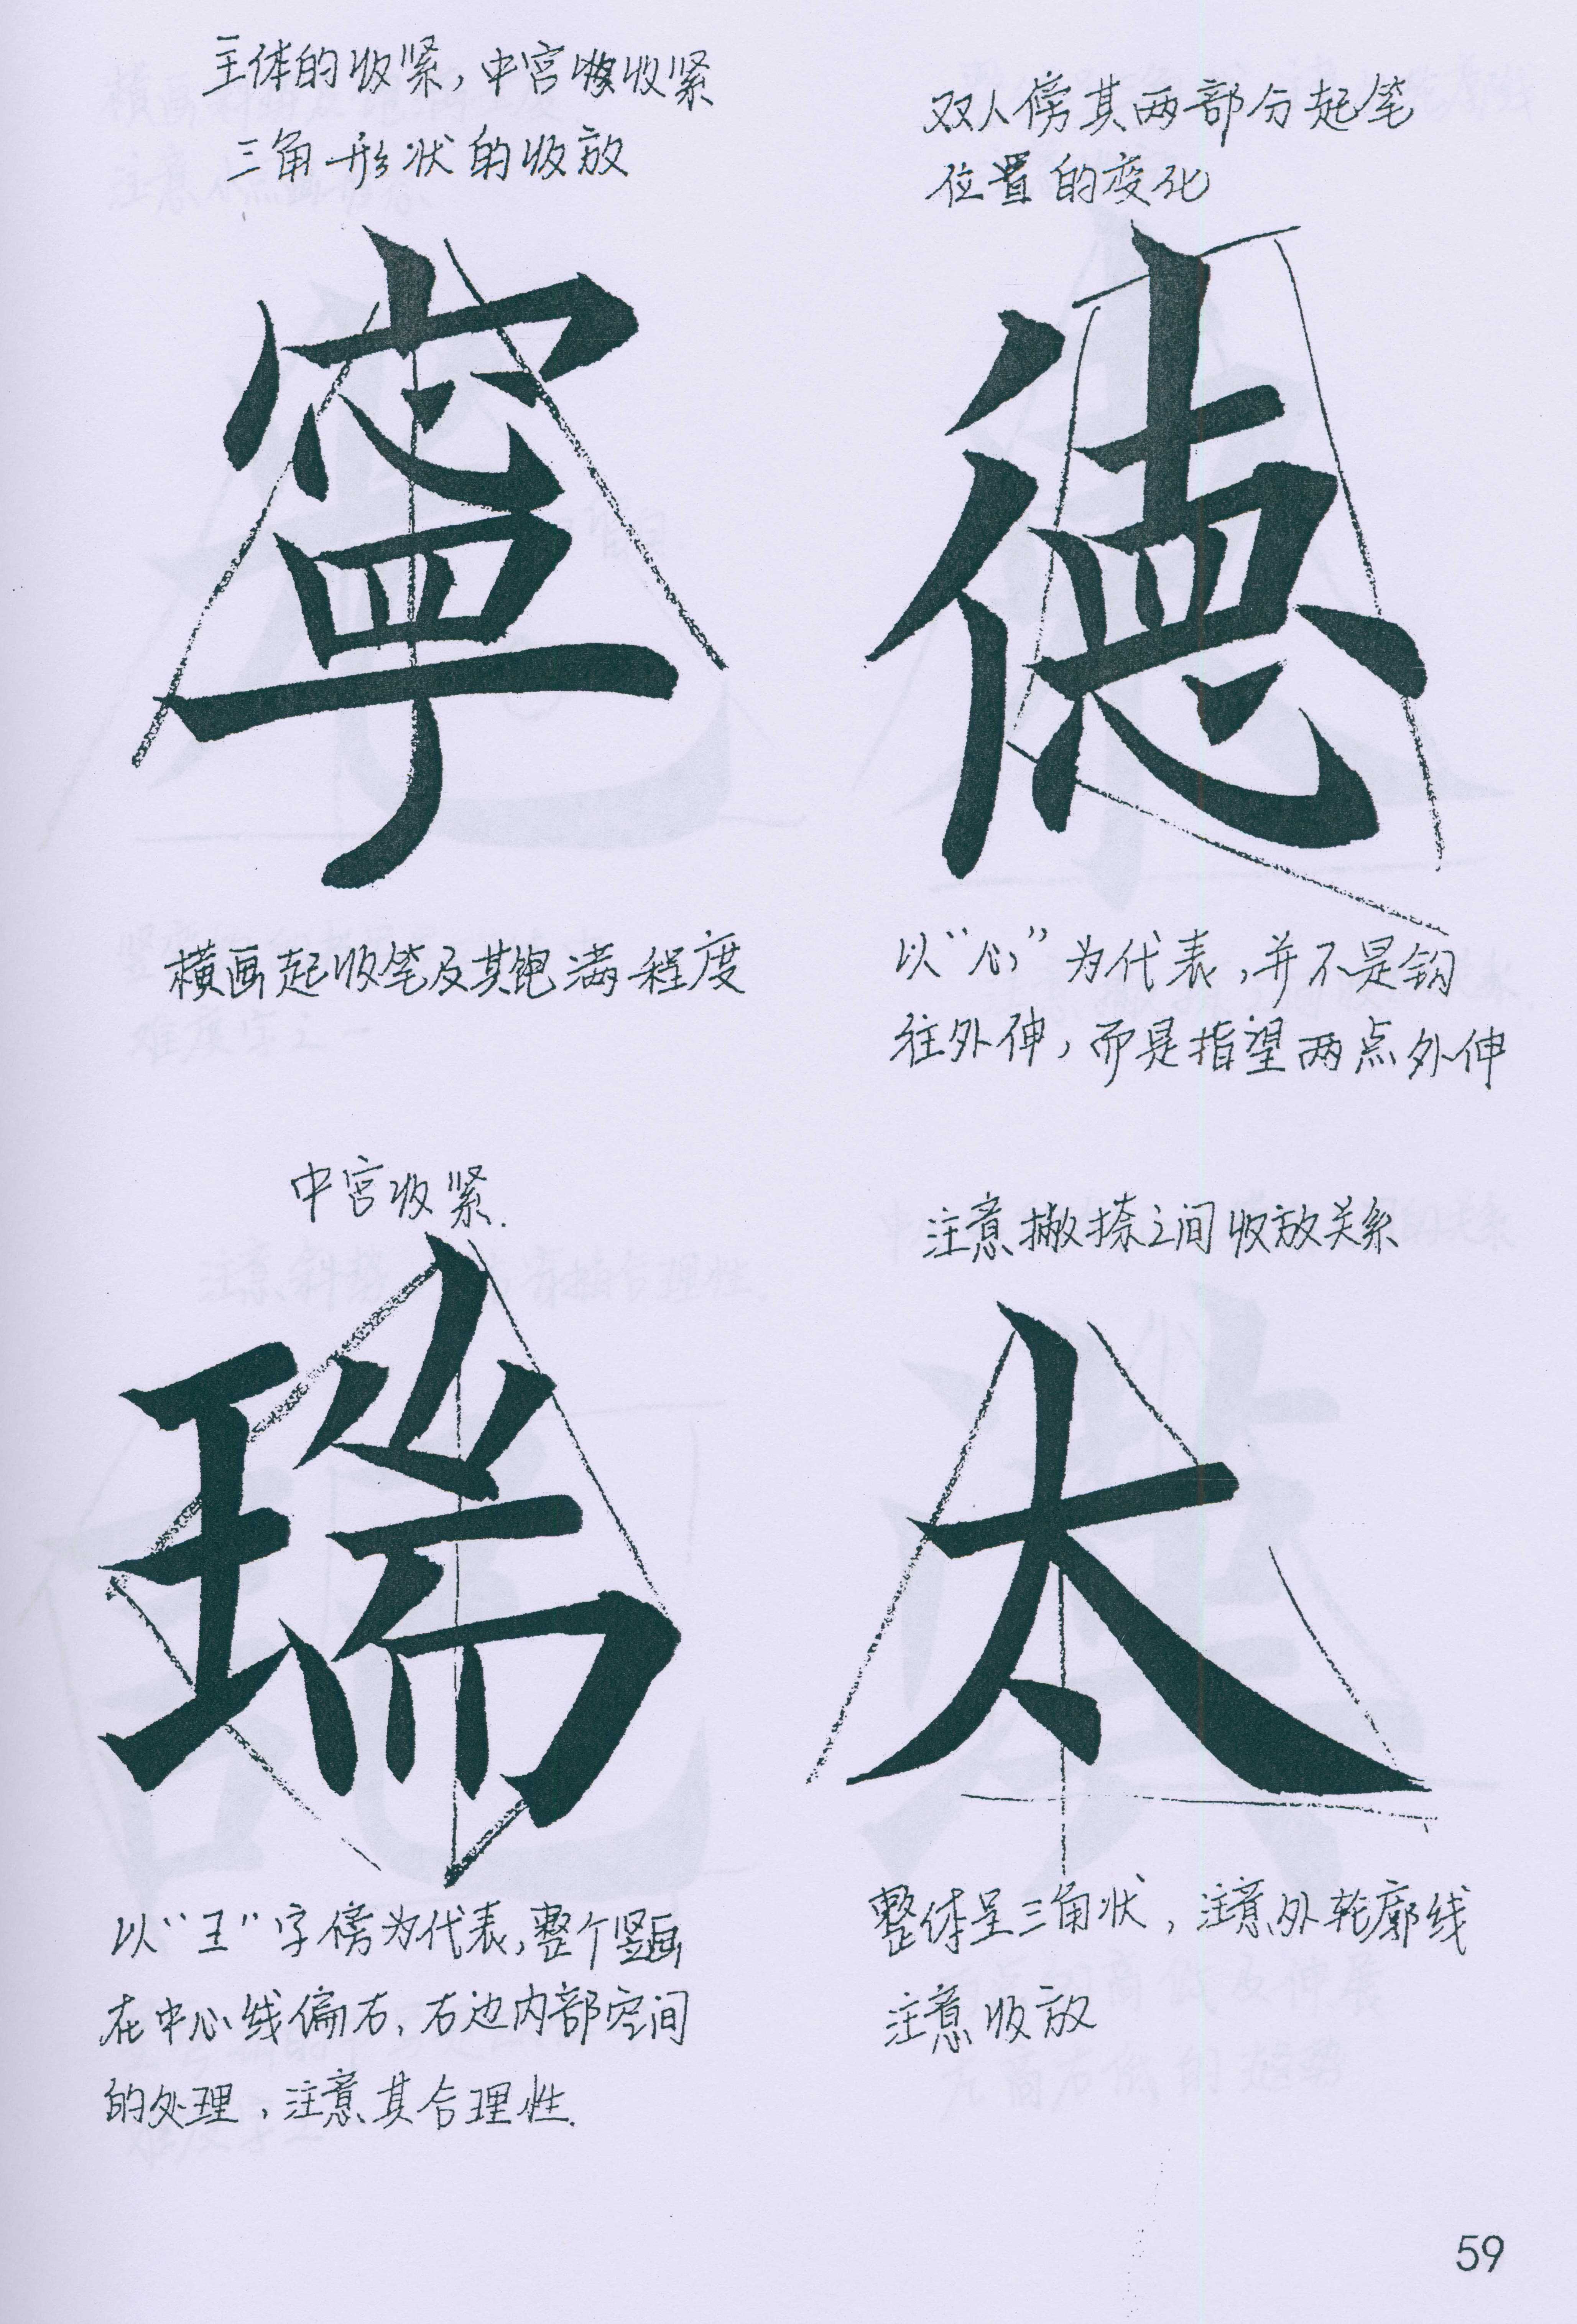 主体的收紧，中宫收收紧
三角形状的收放
寧
横画起收笔及其饱满程度
双人傍其两部分起笔
位置的变化
德
以“心”为代表，并不是钩
往外伸，而是指望两点外伸
中宫收紧.
瑞
以“王”字傍为代表，整个竖画
在中心线偏右，右边内部空间
的处理，注意其合理性.
注意撇捺之间收放关系
太
整体呈三角状，注意外轮廓线
注意收放
59